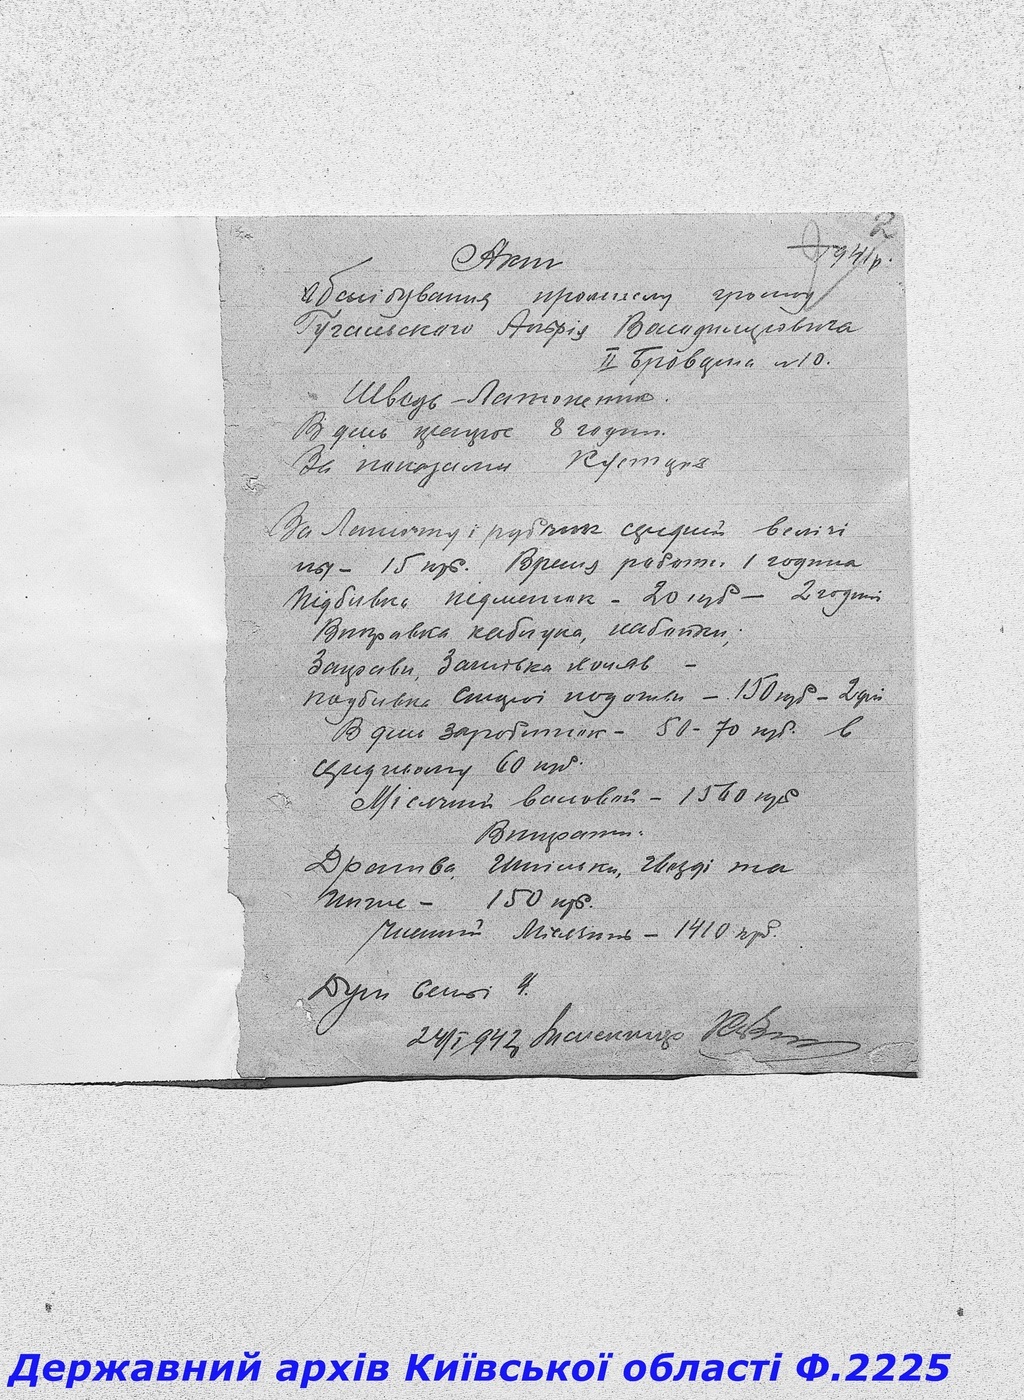 2
Акт
1941р.
Обслідування промислу громад
Андрія Володимировича
II № 10.
Швець - Латочник.
В день працює 8 годин.
За показами
За Латочку і рубчик средній велічі
ну - 15 крб. Время работи 1 година
Підбивка підметок - 20 крб - 2 годині
Виправка каблука, набойки,
Заправи, Зашивка
подбивка подошви - 150 крб - 2 дні
В день заработок - 50-70 крб. в
средньому 60 крб.
Місячний валовой - 1560 крб
Витрати:
Дратва, Шпілька, Гвозді та
инше - 150 крб.
Чистий Місячний - 1410 крб.
Душ семьі 4.
24/I 942
Державний архів Київської області Ф.2225